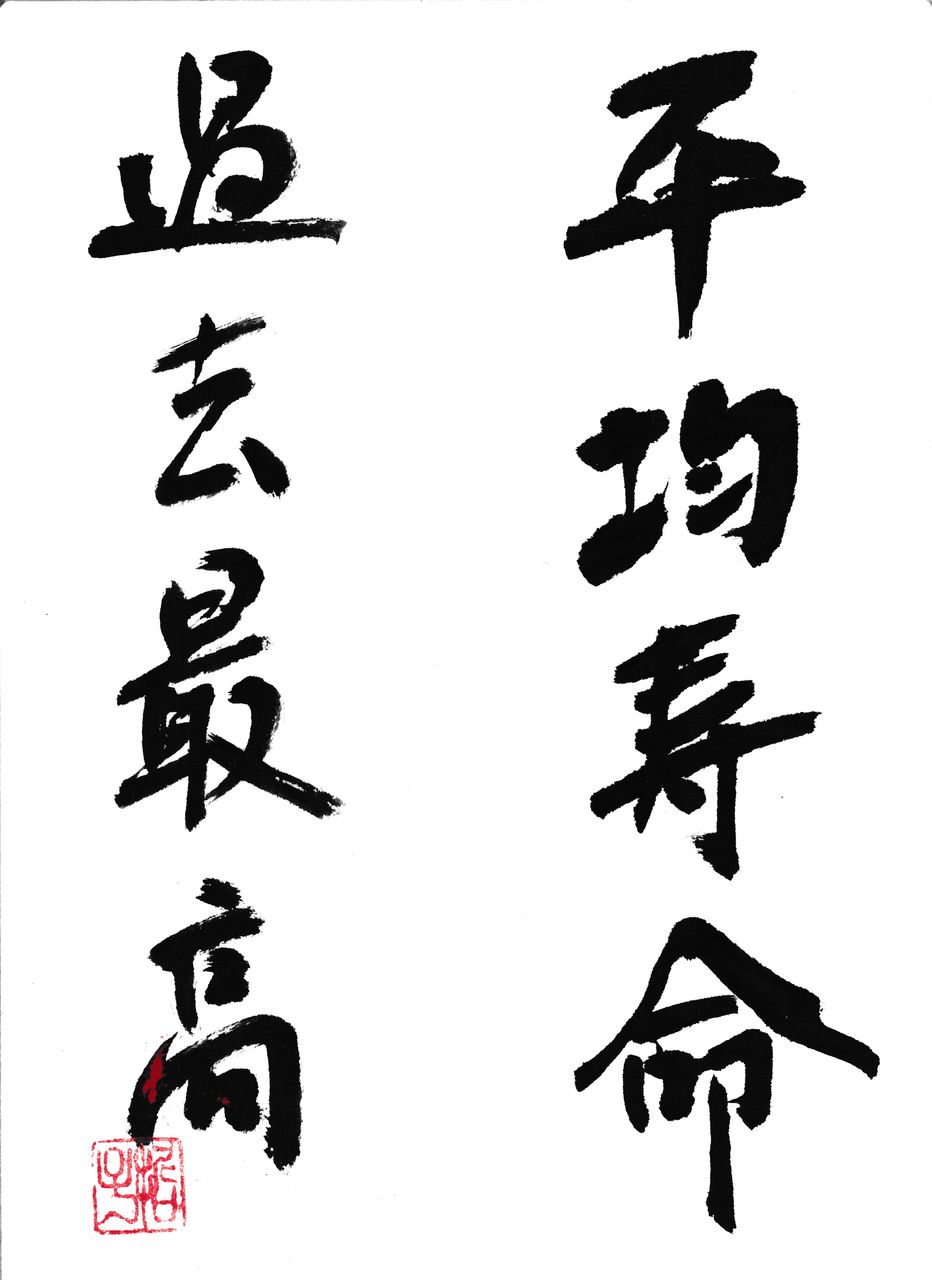 平均寿命
過去最高